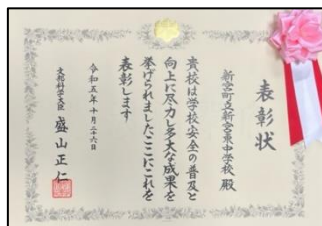 表彰状
新宮町立新宮東中学校 殿
貴校は学校安全の普及と
向上に尽力し多大な成果を
挙げられましたここにこれを
表彰します
令和五年十月二十六日
文部科学大臣 盛山正仁